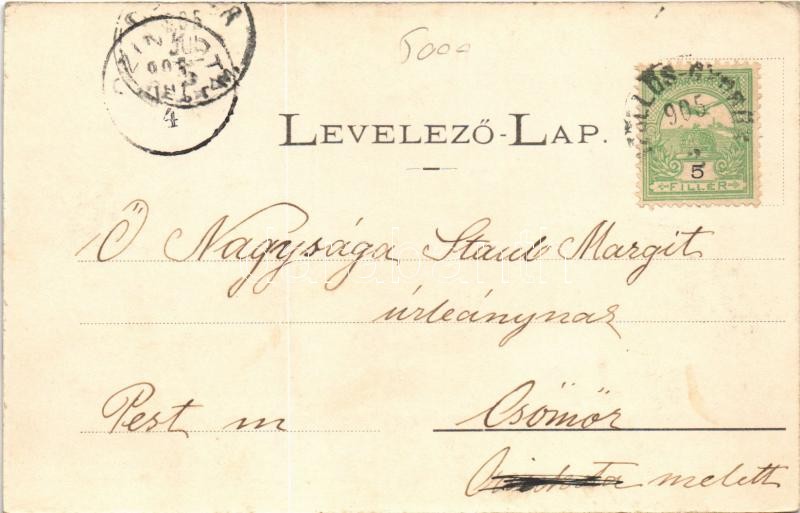 5000
LEVELEZŐ-LAP.
905
5
FILLÉR
4
Ő Nagysága Staub Margit
úrleánynak
Pest m
Csömör
melett